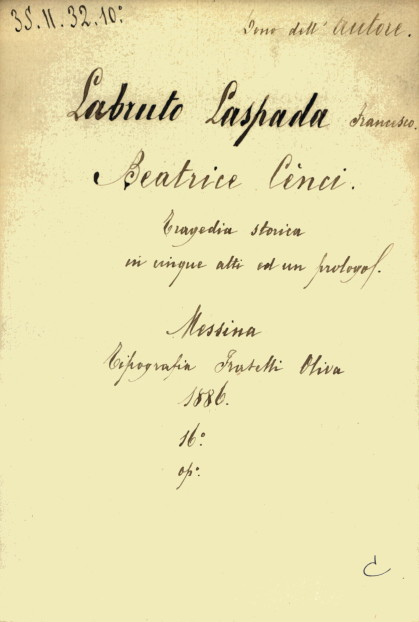 35.II.32.10:
Dono dell' Autore.
Labruto Laspada Francesco.
Beatrice Cènci.
Tragedia storica
in cinque atti ed un prologo.
Messina
Tipografia Fratelli Oliva
1886.
16.°
op.°
C